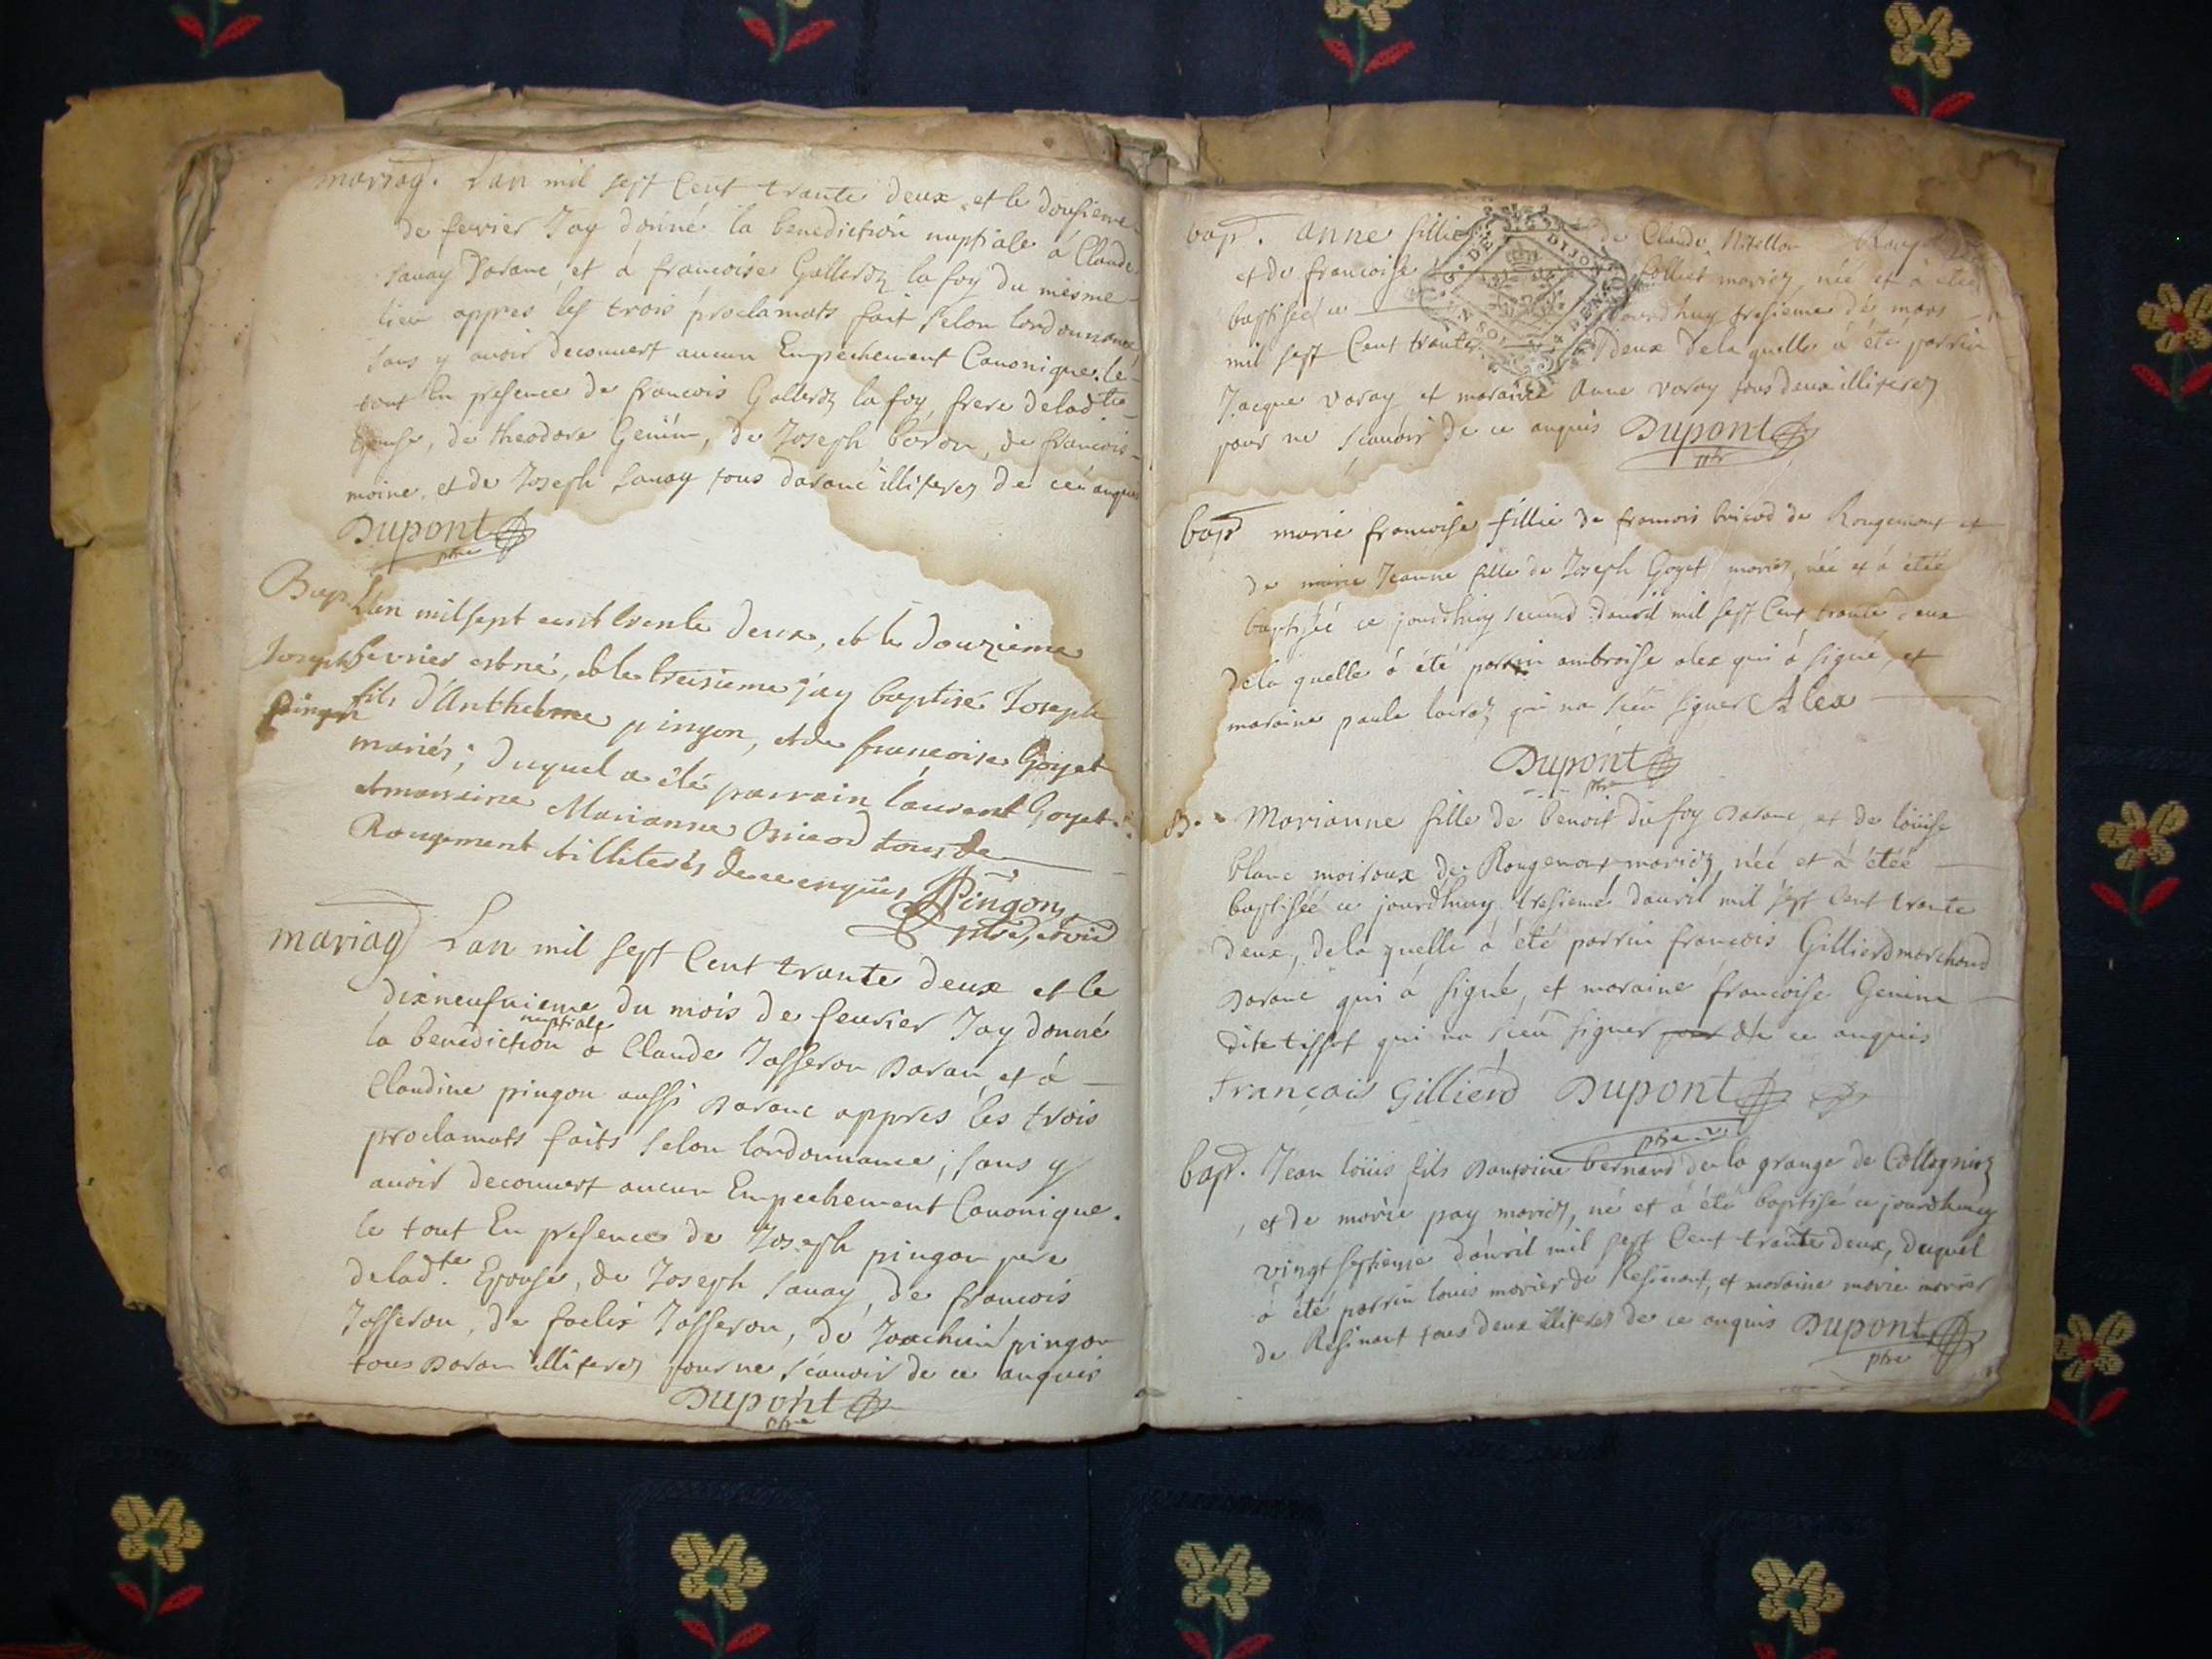 mariag. Lan mil sept Cent trante deux et le dousieme
de fevrier Jay donné la benediction nuptiale à Claude
Savay Daranc et à francoise Gallerdz la foy du mesme
lieu appres les trois proclamats fait selon lordonnance
sans y avoir decouvert aucun Empechement Canonique. le
tout En presence de francois Gallerdz la foy, frere delad.te
Epouse, de theodore Genin, de Joseph boron, de francois
moine, et de Joseph Savay tous daranc illiterez de cè anquis
Dupont
ptre
Bap. Lan mil sept cent trente deux, et le douzieme
Joseph fevrier est né, et le treisieme j'ay baptisé Joseph
pingon fils d'Anthelme pingon, et de francoise Goyet
mariés; duquel a été parrain laurent Goyet
et marreine Marianne Bricod tous de
Rougemont et illiterés de ce enquis Pingon
ptre, et vic
mariag Lan mil sept Cent trante deux et le
dixneufuieme du mois de feurier Jay donné
nuptiale
la benediction à Claude Josseron Daran, et à
Claudine pingon aussi Daranc appres les trois
proclamats faits selon lordonnance; sans y
avoir decouvert aucun Empechement Canonique.
le tout En presence de Joseph pingon pere
delad.te Epouse, de Joseph Savay, de francois
Josseron, de foelix Josseron, de Joachim pingon
tous Daran illiterez pour ne scavoir de ce anquis
Dupont
ptre
bap. Anne fillie de Claude Nitellon
et de francoise Colliet mariez, née et à etée
baptiséé ce jourdhuy tresieme des mars
mil sept Cent trante deux dela quelle à été parrin
Jacque varay et maraine Anne varay tous deux illiterez
pour ne scauoir de ce anquis Dupont
ptr
bap marie francoise fillie de francois bricod de Rougemont et
de marie Jeanne fille de Joseph Goyet mariez, née et à étéé
baptiséé ce jourdhuy second dauril mil sept Cent trante deux
dela quelle à été parrin ambroise alex qui à signé, et
maraine paule lairaz qui na sceu signer Alex
Dupont
ptre
B. Marianne fille de benoit du foy Daranc, et de loüise
blanc moiroux de Rougemont mariez, néé et à étéé
baptiséé ce jourdhuy tresieme dauril mil sept Cent trante
deux, dela quelle à été parrin francois Gillierd marchand
Daranc qui à signé, et maraine francoise Genin
dite tissot qui na sceu signer de ce anquis
François Gillierd Dupont
ptre
bap. Jean loüis fils Dantoine bernard de la grange de Collogniez
et de marie pay mariez, né et à été baptisé ce jourdhuy
vingt septieme dauril mil sept Cent trante deux, duquel
à été parrin louis morier de Resinant, et maraine marie morier
de Resinant tous deux illiterez de ce anquis Dupont
ptre